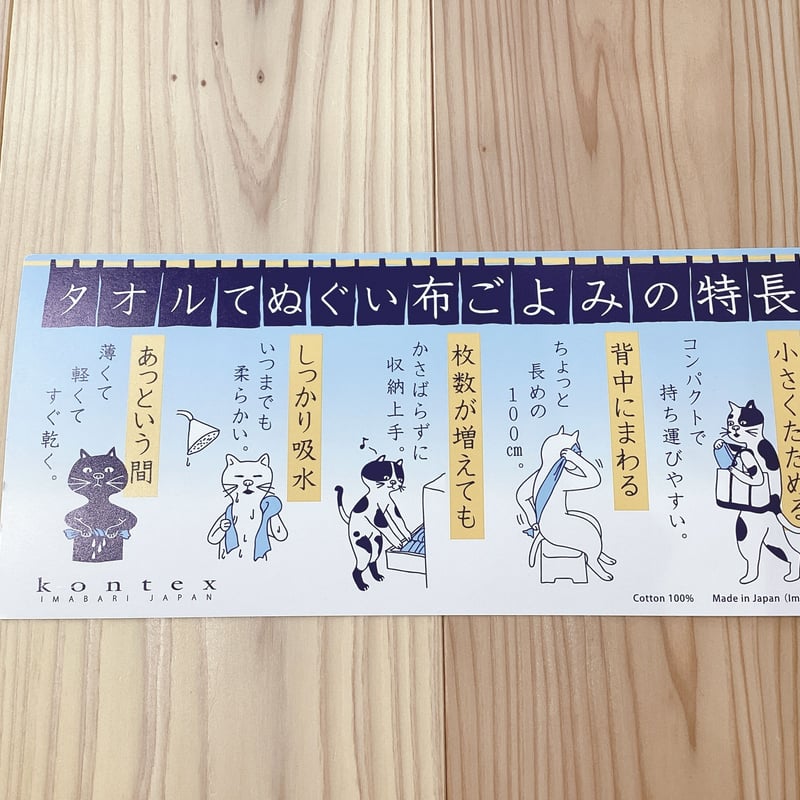 タオルてぬぐい布ごよみの特長
小さくたためる
コンパクトで
持ち運びやすい。
背中にまわる
ちょっと
長めの
100cm。
枚数が増えても
かさばらずに
収納上手。
しっかり吸水
いつまでも
柔らかい。
あっという間
薄くて
軽くて
すぐ乾く。
kontex
IMABARI JAPAN
Cotton 100%
Made in Japan (Im